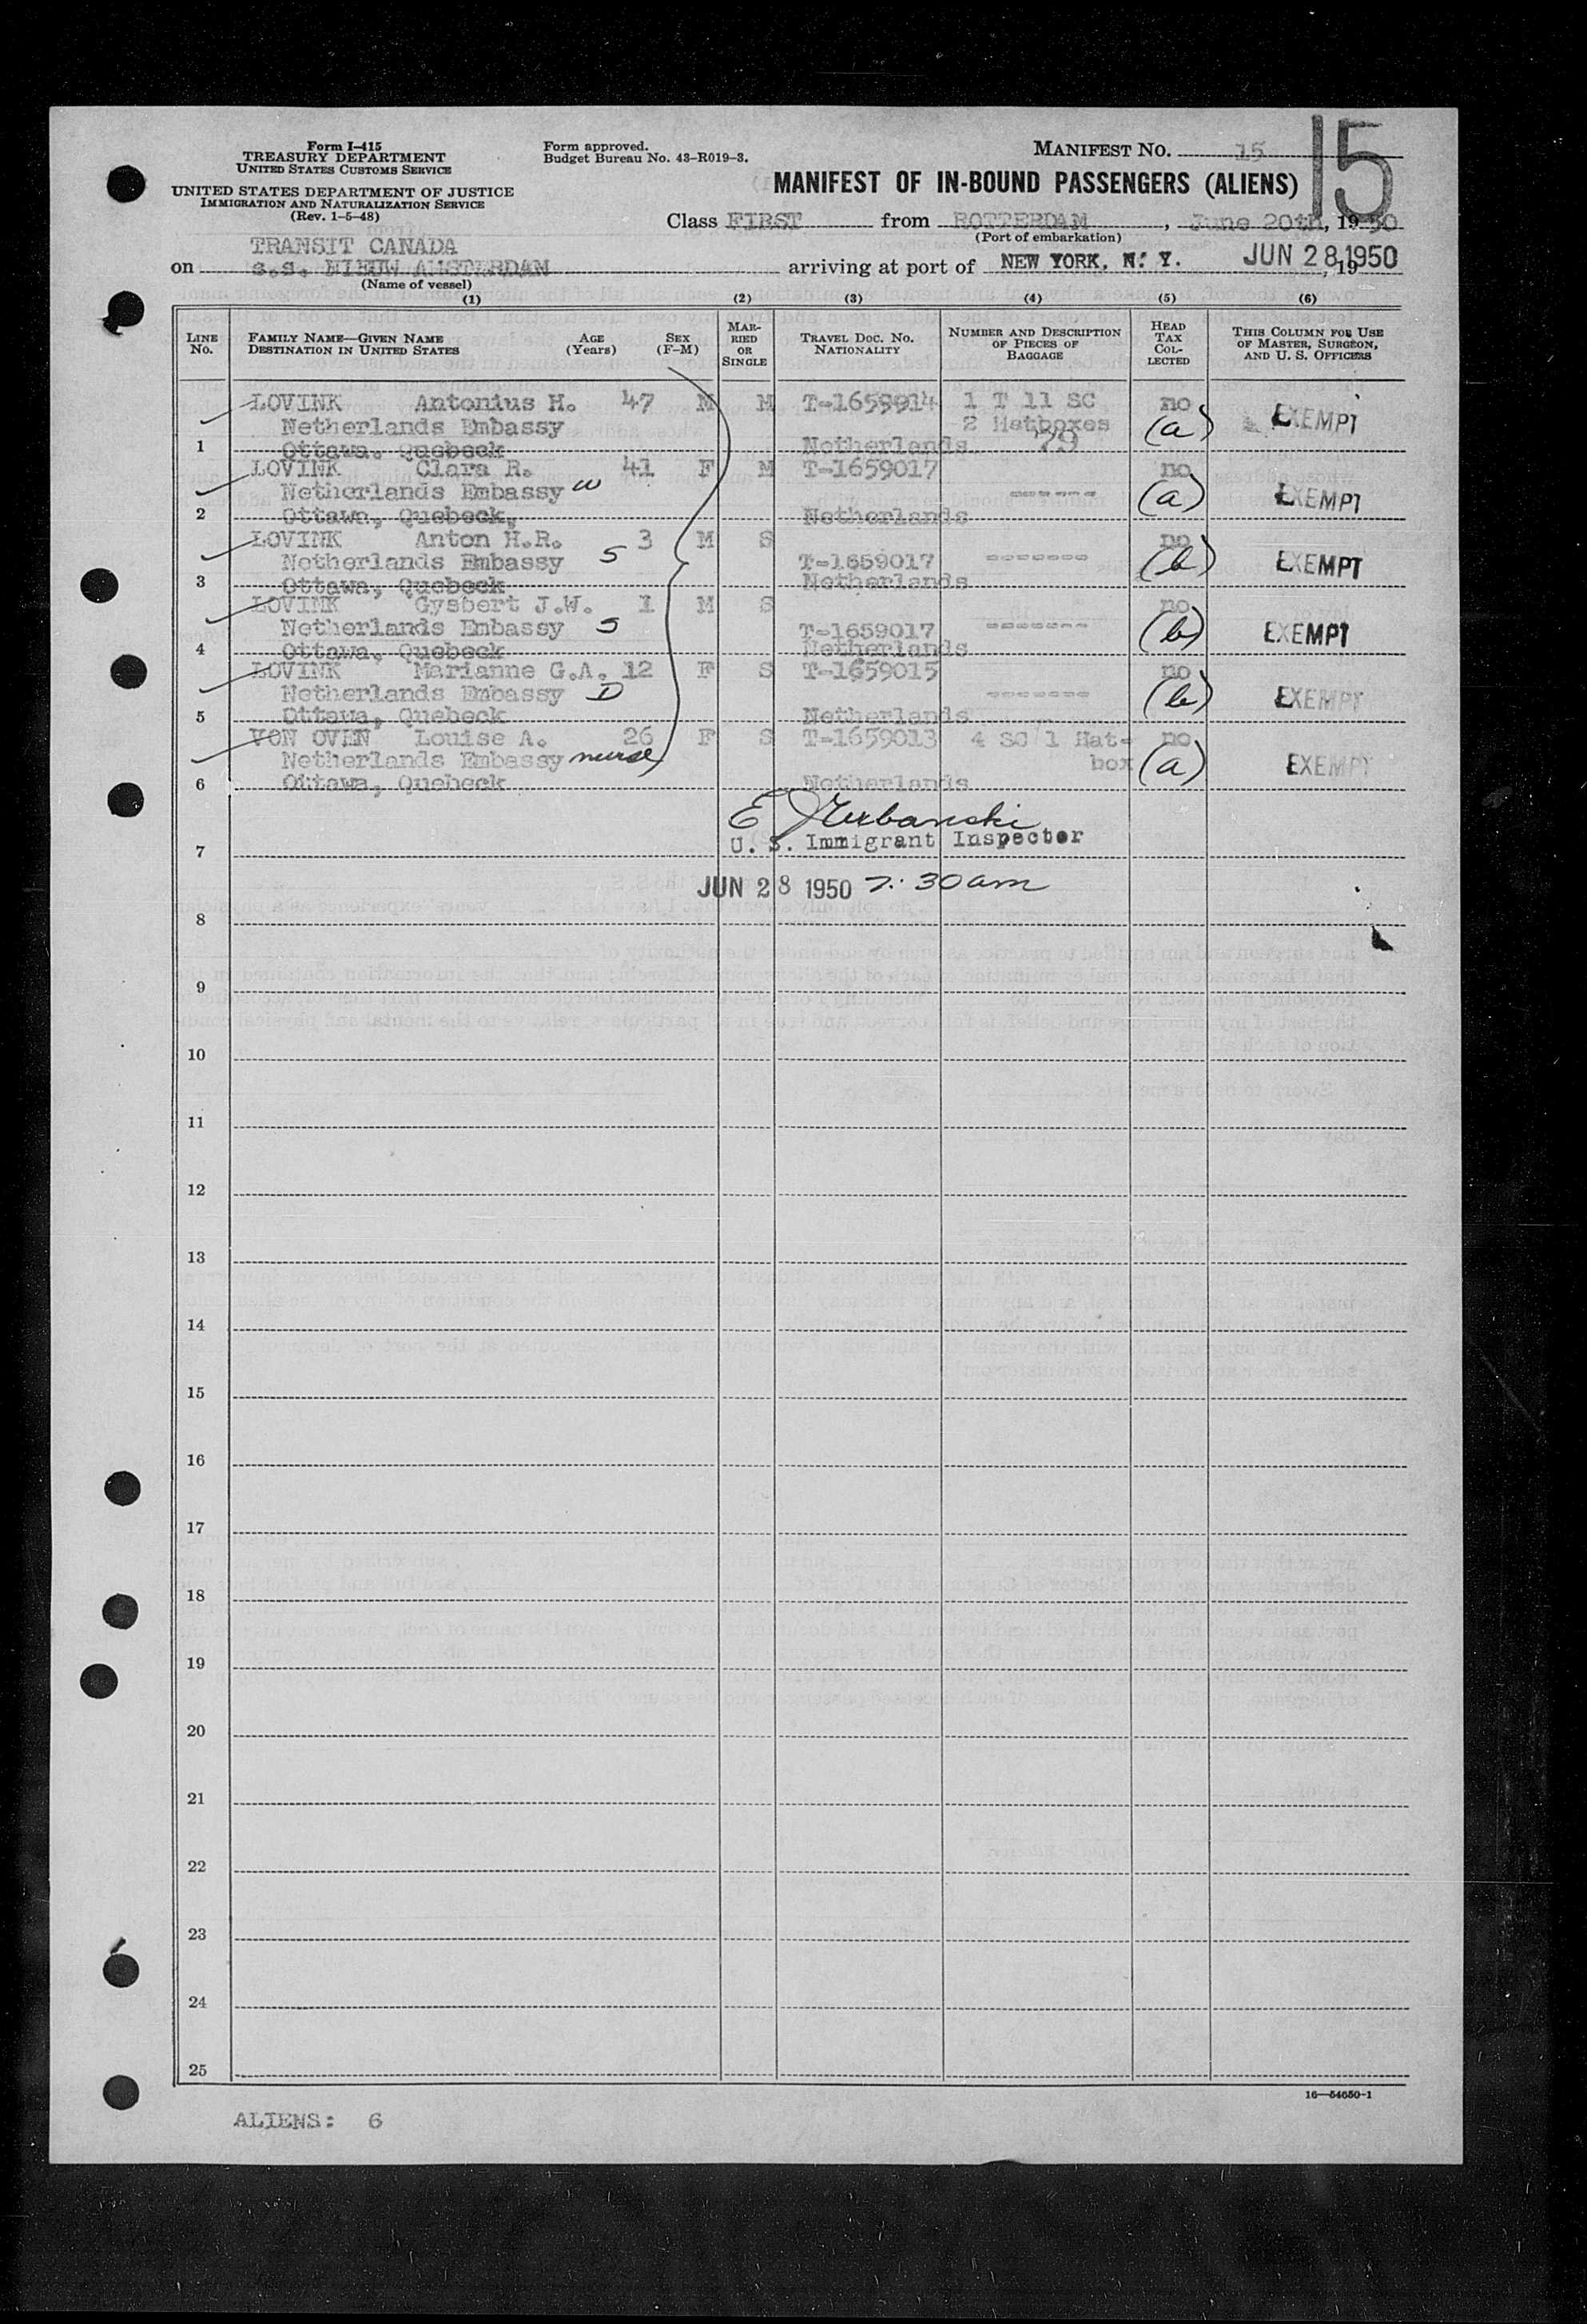 Form I-415
TREASURY DEPARTMENT
UNITED STATES CUSTOMS SERVICE
UNITED STATES DEPARTMENT OF JUSTICE
IMMIGRATION AND NATURALIZATION SERVICE
(Rev. 1-5-48)
Form approved.
Budget Bureau No. 43-R019-3.
MANIFEST NO. 15
15
MANIFEST OF IN-BOUND PASSENGERS (ALIENS)
Class FIRST from ROTTERDAM, June 20th, 1950
(Port of embarkation)
TRANSIT CANADA
on s.s. NIEUW AMSTERDAM arriving at port of NEW YORK, N. Y. JUN 28 1950, 19
(Name of vessel)
(1) (2) (3) (4) (5) (6)
LINE NO. FAMILY NAME—GIVEN NAME DESTINATION IN UNITED STATES AGE (Years) SEX (F-M) MARRIED OR SINGLE TRAVEL DOC. NO. NATIONALITY NUMBER AND DESCRIPTION OF PIECES OF BAGGAGE HEAD TAX COLLECTED THIS COLUMN FOR USE OF MASTER, SURGEON, AND U. S. OFFICERS
LOVINK Antonius H. 47 M M T-1659914 1 T 11 SC no
Netherlands Embassy 2 Hatboxes (a) EXEMPT
1 Ottawa. Quebeck Netherlands. 79
LOVINK Clara R. 41 F M T-1659017 no
Netherlands Embassy w ------ (a) EXEMPT
2 Ottawa, Quebeck, Netherlands
LOVINK Anton H.R. 3 M S no
Netherlands Embassy S T-1659017 ------- (b) EXEMPT
3 Ottawa, Quebeck Netherlands
LOVINK Gysbert J.W. 1 M S no
Netherlands Embassy S T-1659017 ------- (b) EXEMPT
4 Ottawa, Quebeck Netherlands
LOVINK Marianne G.A. 12 F S T-1659015 no
Netherlands Embassy D ------- (b) EXEMPT
5 Ottawa, Quebeck Netherlands
VON OVEN Louise A. 26 F S T-1659013 4 SC 1 Hat- no
Netherlands Embassy nurse box (a) EXEMPT
6 Ottawa, Quebeck Netherlands
E J Urbanski
7 U. S. Immigrant Inspector
JUN 28 1950 7:30am
8
9
10
11
12
13
14
15
16
17
18
19
20
21
22
23
24
25
16—54650-1
ALIENS: 6